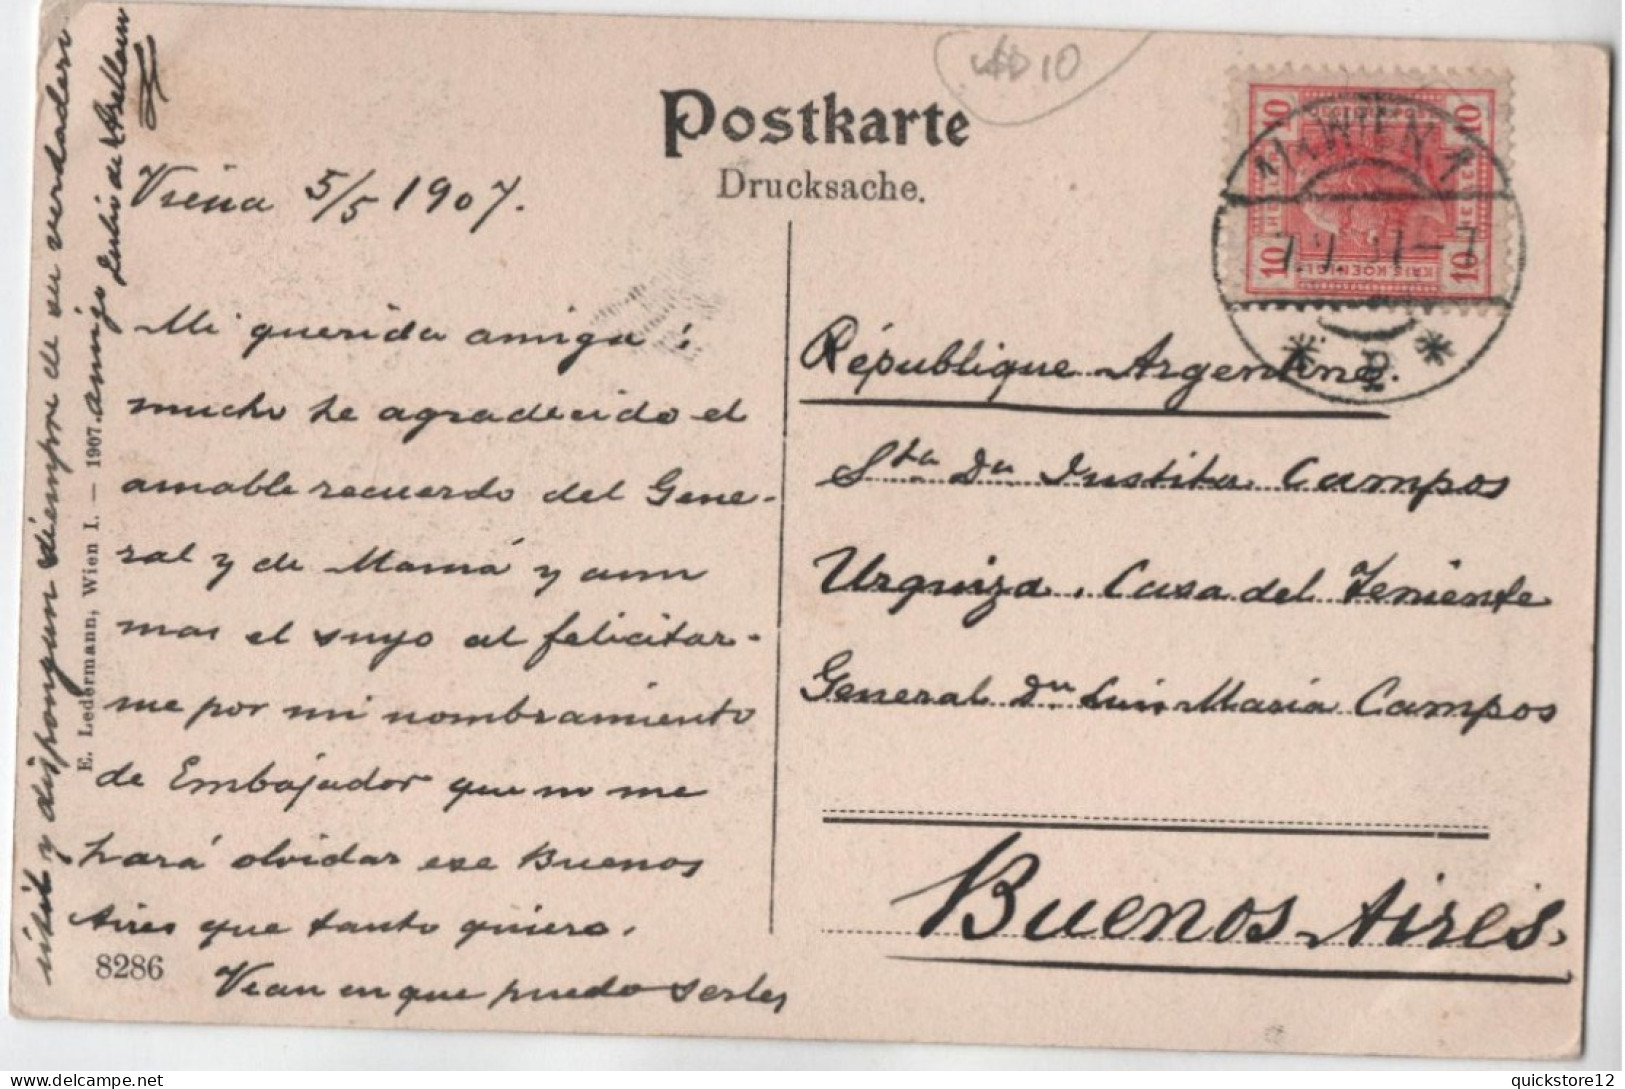 USD 10
Postkarte
Drucksache.
Viena 5/5 1907.
Mi querida amiga:
mucho he agradecido el
amable recuerdo del Gene-
ral y de Mamá y aun
mas el suyo al felicitar-
me por mi nombramiento
de Embajador que no me
hará olvidar ese Buenos
Aires que tanto quiero.
Vean en que puedo serles
util y dispongan siempre de su verdadero
amigo Julio de Arellano
E. Ledermann, Wien I. — 1907.
8286
10 10
10 10
HELLER
KAIS. KOENIGL.
1/1 WIEN 1
République Argentine.
Sta Da Justita Campos
Urquiza. Casa del Teniente
General Dn Luis Maria Campos
Buenos Aires.
quickstore12